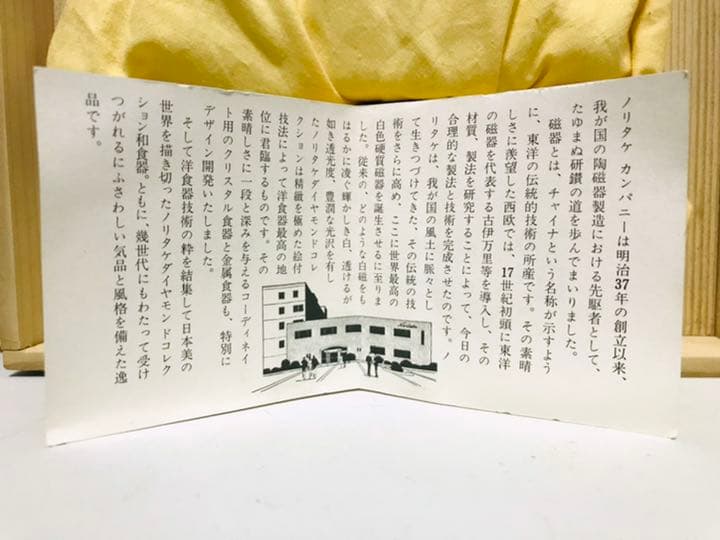 ノリタケ カンパニーは明治37年の創立以来、
我が国の陶磁器製造における先駆者として、
たゆまぬ研鑽の道を歩んでまいりました。
磁器とは、チャイナという名称が示すよう
に、東洋の伝統的技術の所産です。その素晴
しさに羨望した西欧では、17世紀初頭に東洋
の磁器を代表する古伊万里等を導入し、その
材質、製法を研究することによって、今日の
合理的な製法と技術を完成させたのです。ノ
リタケは、我が国の風土に脈々とし
て生きつづけてきた、その伝統の技
術をさらに高め、ここに世界最高の
白色硬質磁器を誕生させるに至りま
した。従来の、どのような白磁をも
はるかに凌ぐ輝かしき白、透けるが
如き透光度、豊潤な光沢を有し
たノリタケダイヤモンドコレ
クションは精緻を極めた絵付
技法によって洋食器最高の地
位に君臨するものです。その
素晴しさに一段と深みを与えるコーディネイ
ト用のクリスタル食器と金属食器も、特別に
デザイン開発いたしました。
そして洋食器技術の粋を結集して日本美の
世界を描き切ったノリタケダイヤモンドコレク
ション和食器。ともに、幾世代にもわたって受け
つがれるにふさわしい気品と風格を備えた逸
品です。
Noritake